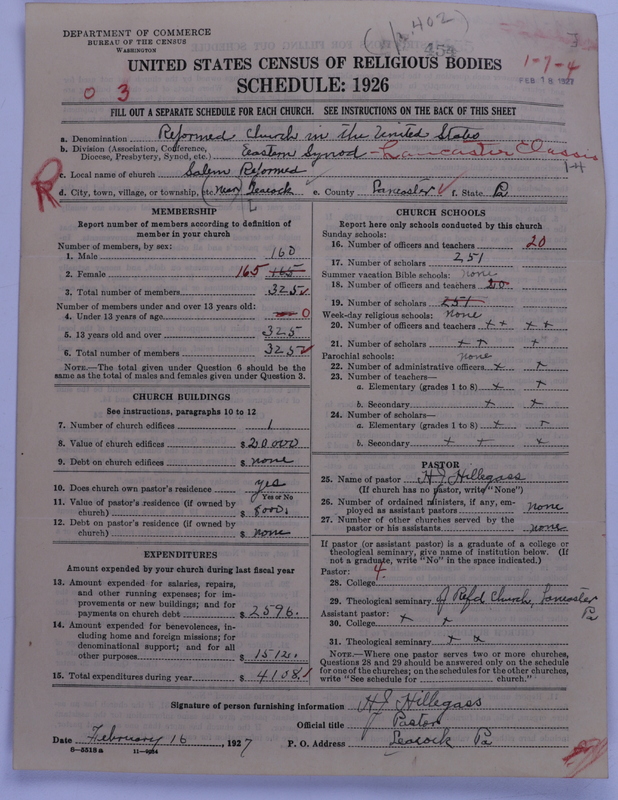 DEPARTMENT OF COMMERCE
BUREAU OF THE CENSUS
WASHINGTON
1-7-4
FEB 18 1927
UNITED STATES CENSUS OF RELIGIOUS BODIES
SCHEDULE: 1926
0 3
FILL OUT A SEPARATE SCHEDULE FOR EACH CHURCH. SEE INSTRUCTIONS ON THE BACK OF THIS SHEET
a. Denomination Reformed Church in the United States
b. Division (Association, Conference, Diocese, Presbytery, Synod, etc.) Eastern Synod - Lancaster Classis
c. Local name of church Salem Reformed
R
d. City, town, village, or township, etc. Near Leacock e. County Lancaster f. State Pa
MEMBERSHIP
Report number of members according to definition of
member in your church
Number of members, by sex:
1. Male 160
2. Female 165 165
3. Total number of members 325
Number of members under and over 13 years old:
4. Under 13 years of age 0
5. 13 years old and over 325
6. Total number of members 325
NOTE.—The total given under Question 6 should be
same as the total of males and females given under Question 3.
CHURCH BUILDINGS
See instructions, paragraphs 10 to 12
7. Number of church edifices 1
8. Value of church edifices $20000
9. Debt on church edifices $ none
10. Does church own pastor's residence yes
Yes or No
11. Value of pastor's residence (if owned by
church) $
12. Debt on pastor's residence (if owned by
church) $ none
EXPENDITURES
Amount expended by your church during last fiscal year
13. Amount expended for salaries, repairs,
and other running expenses; for im-
provements or new buildings; and for
payments on church debt $ 2596.
14. Amount expended for benevolences, in-
cluding home and foreign missions; for
denominational support; and for all
other purposes $ 1512.
15. Total expenditures during year $ 4108.
CHURCH SCHOOLS
Report here only schools conducted by this church
Sunday schools:
16. Number of officers and teachers 20
17. Number of scholars 251
Summer vacation Bible schools: none
18. Number of officers and teachers 20
19. Number of scholars 251
Week-day religious schools: none
20. Number of officers and teachers x x x x
21. Number of scholars x x x
Parochial schools: none
22. Number of administrative officers x x
23. Number of teachers—
a. Elementary (grades 1 to 8) x x
b. Secondary x x
24. Number of scholars—
a. Elementary (grades 1 to 8) x x x
b. Secondary x x x
PASTOR
25. Name of pastor H J Hillegass
(If church has no pastor, write "None")
26. Number of ordained ministers, if any, em-
ployed as assistant pastors none
27. Number of other churches served by the
pastor or his assistants none
If pastor (or assistant pastor) is a graduate of a college or
theological seminary, give name of institution below. (If
not a graduate, write "No" in the space indicated.)
Pastor: 4
28. College
29. Theological seminary of Ref'd Church, Lancaster Pa
Assistant pastor:
30. College x x
31. Theological seminary x x
NOTE.—Where one pastor serves two or more churches,
Questions 28 and 29 should be answered only on the schedule
for one of the churches; on the schedules for the other churches,
write "See schedule for church."
Signature of person furnishing information H J Hillegass
Official title Pastor
Date February 16, 1927 P. O. Address Leacock Pa
8-5518a 11-9684